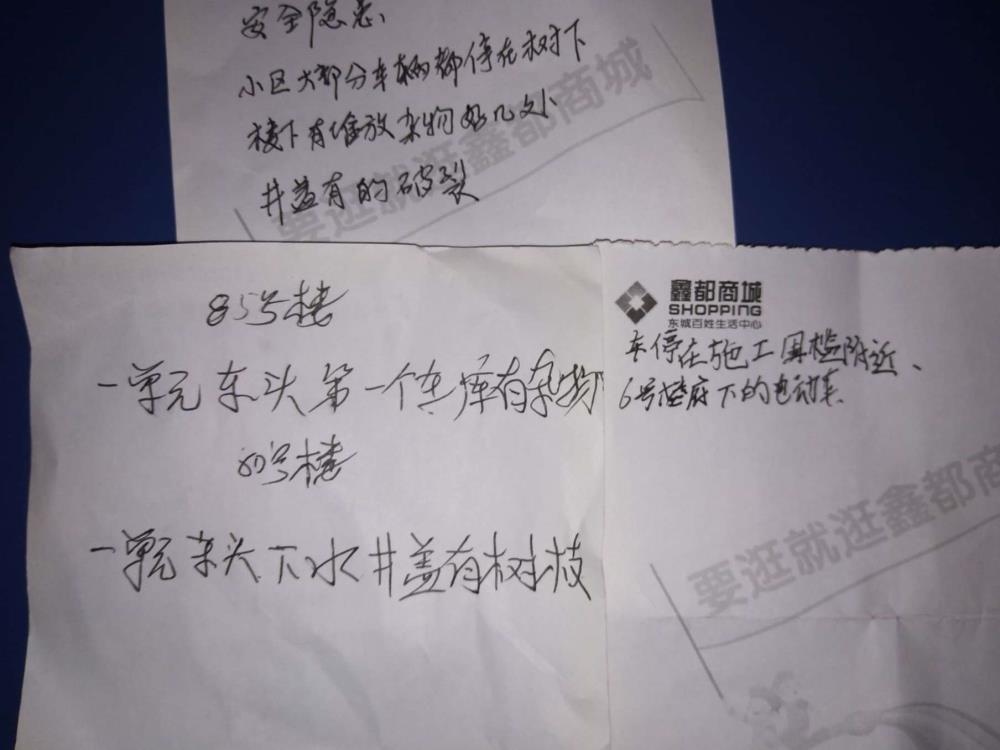 安全隐患
小区大部分车辆都停在树下
楼下有堆放杂物好几处
井盖有的破裂
要逛就逛鑫都商城
85号楼
一单元东头第一个车库有杂物
号楼
一单元东头下水井盖有树枝
鑫都商城
SHOPPING
东城百姓生活中心
车停在施工围槛附近、
6号楼底下的电动车
要逛就逛鑫都商